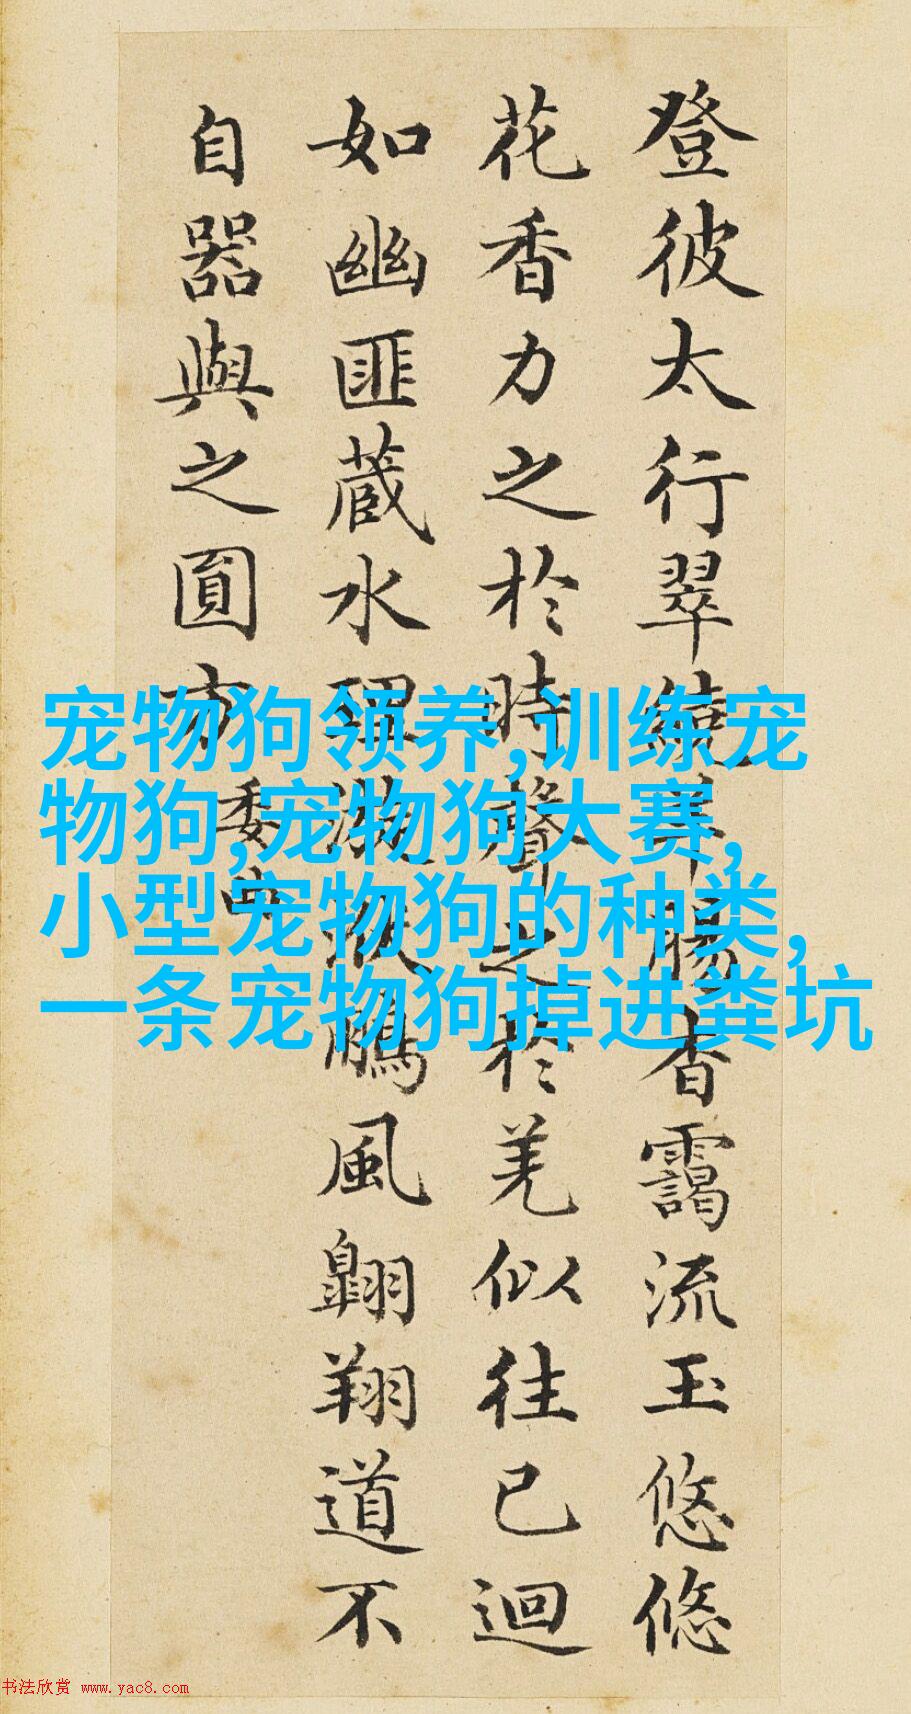 登彼太行翠繞羊腸杳靄流玉悠悠
花香力之於時聲之於羌似往已迴
如幽匪蔵水理漩洑鵬風翺翔道不
自器與之圓方
委曲
宠物狗领养,训练宠
物狗,宠物狗大赛,
小型宠物狗的种类,
一条宠物狗掉进粪坑
书法欣赏 www.yac8.com